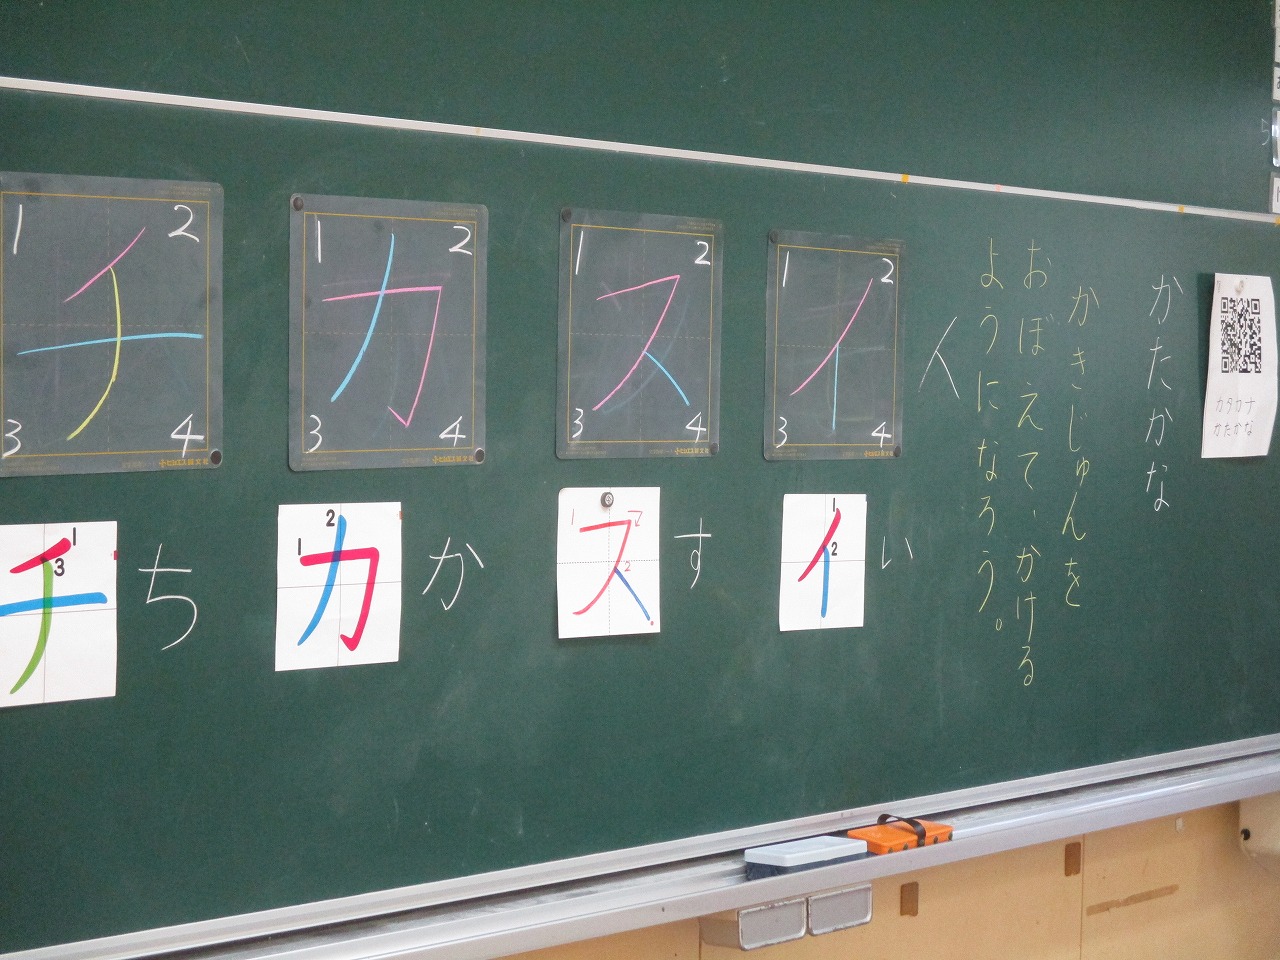 カタカナ
かたかな
かたかな
かきじゅんを
おぼえて、かける
ようになろう。
人
1 2
イ
3 4
1 2
ス
3 4
1 2
カ
3 4
1 2
チ
3 4
1
2
イ
い
1
2
ス
す
1
2
カ
か
1
3
チ
ち